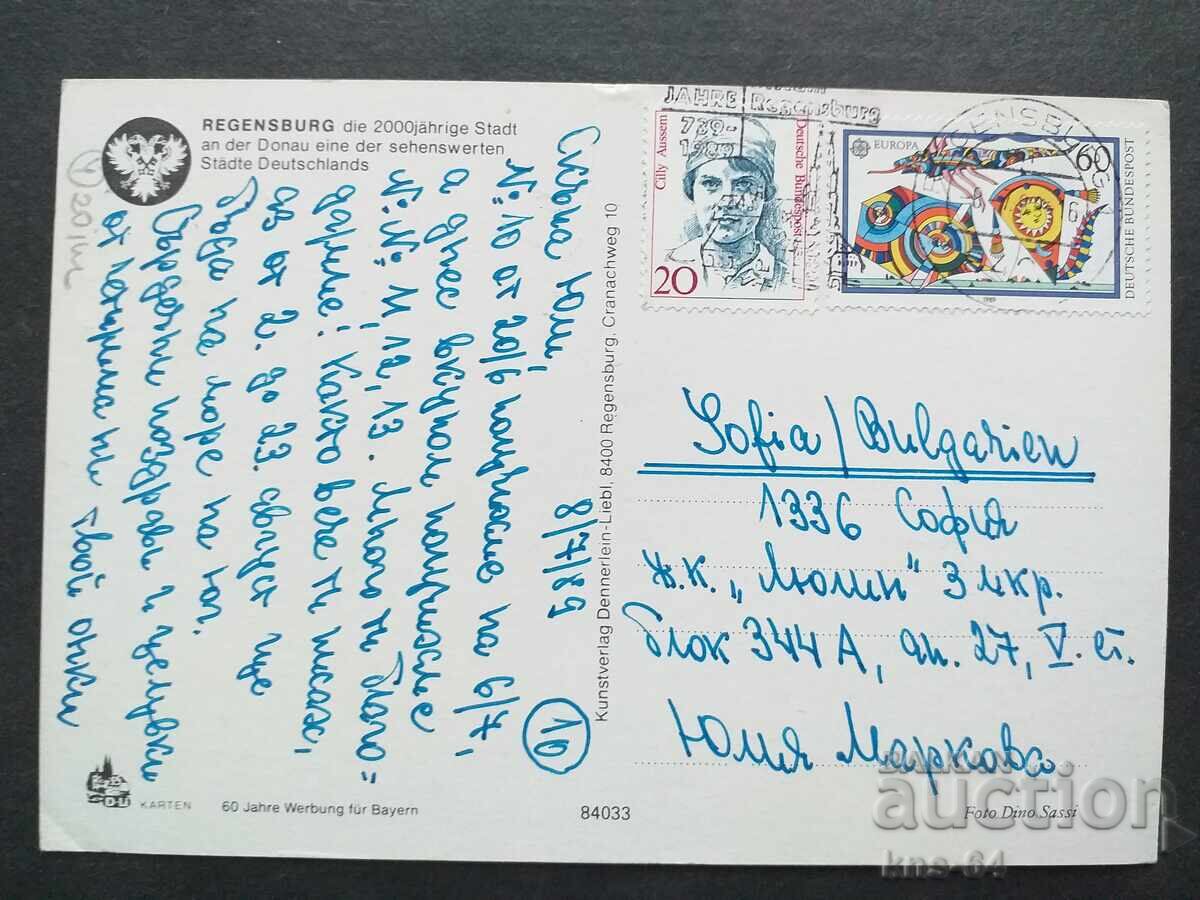 REGENSBURG die 2000jährige Stadt
an der Donau eine der sehenswerten
Städte Deutschlands
8/7/89
10
Скъпа Юли,
№ 10 от 20/6 получихме на 6/7,
а днес вкупом получихме
№№ 11, 12, 13. Много ти благо=
дариме! Както вече ти писах,
аз от 2. до 23. август ще
бъда на море на юг.
Сърдечни поздрави и целувки
от Петърла ни твой
20
Kunstverlag Dennerlein-Liebl, 8400 Regensburg, Cranachweg 10
JAHRE Regensburg
739-
1989
Cilly Aussem
Deutsche Bundespost
20
EUROPA
60
DEUTSCHE BUNDESPOST
1989
Sofia/Bulgarien
1336 София
ж.к. „Люлин" 3 мкр.
блок 344 А, ап. 27, V. ет.
Юлия Маркова
KARTEN
60 Jahre Werbung für Bayern
84033
Foto Dino Sassi
BALKAN
auction
kns-64